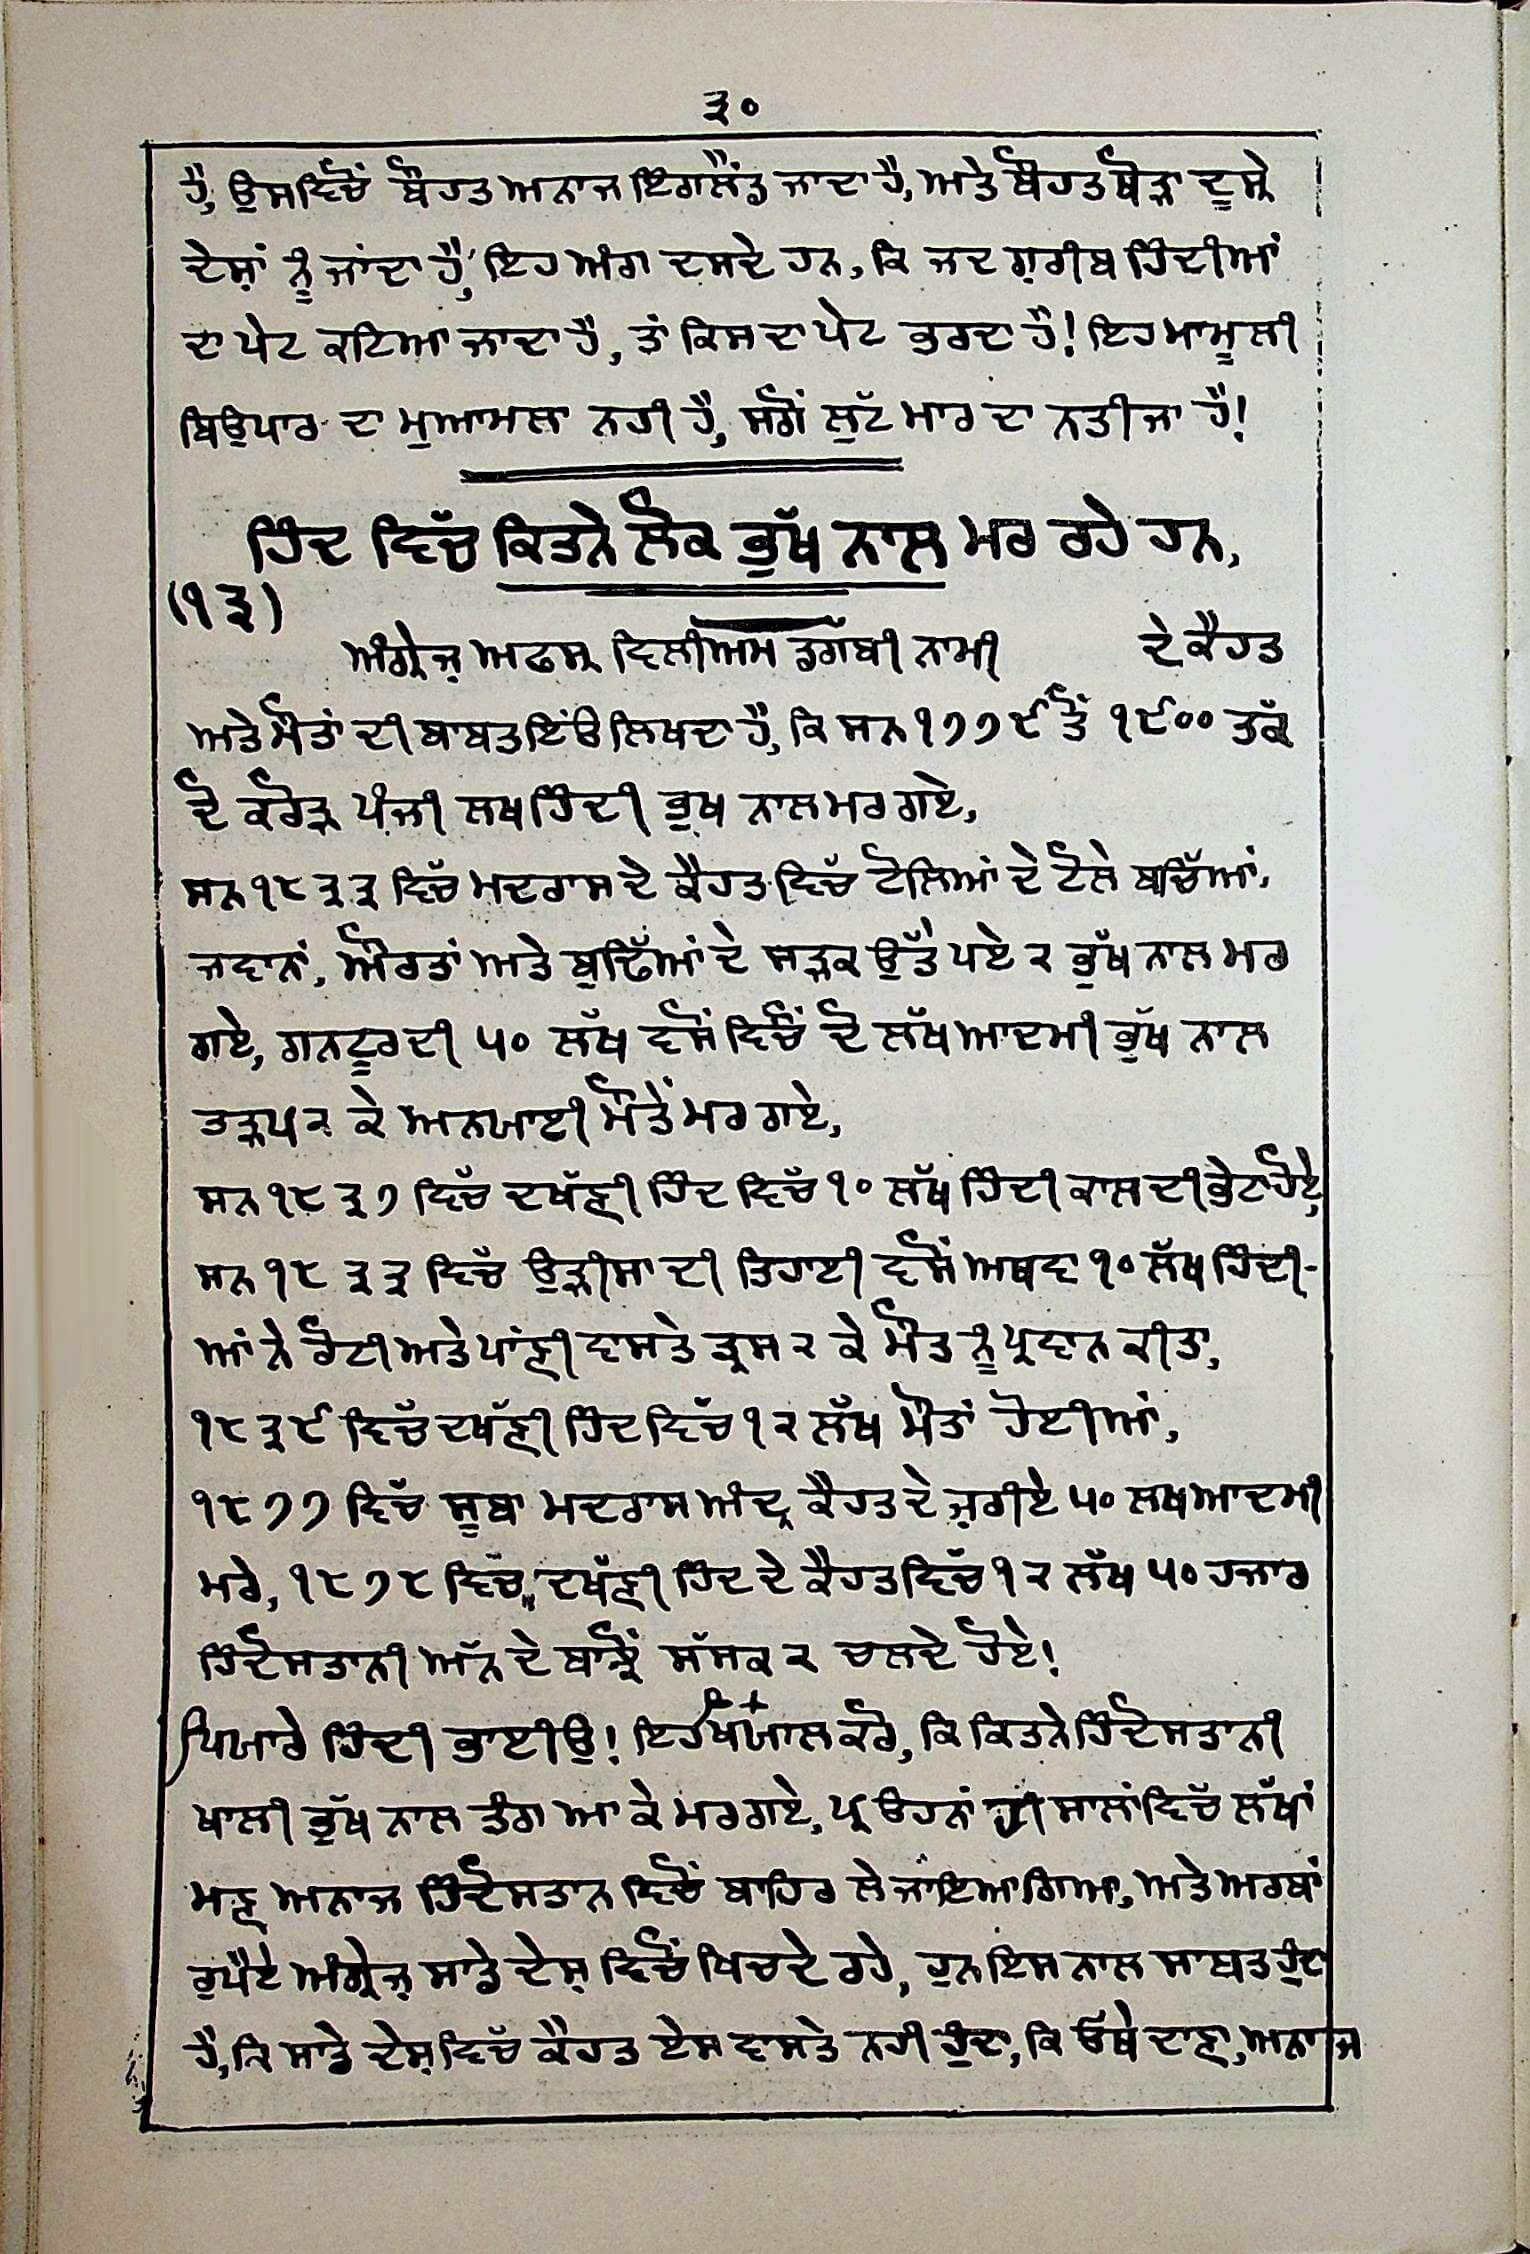 ੩੦
ਹੈ, ਉਸਵਿਚੋਂ ਬੌਹਤ ਅਨਾਜ ਇੰਗਲੈਂਡ ਜਾਦਾ ਹੈ, ਅਤੇ ਬੌਹਤ ਥੋੜਾ ਦੂਸ੍ਰੇ
ਦੇਸ਼ਾਂ ਨੂੰ ਜਾਂਦਾ ਹੈ, ਇਹ ਅੰਗ ਦਸਦੇ ਹਨ, ਕਿ ਜਦ ਗ਼ਰੀਬ ਹਿੰਦੀਆਂ
ਦਾ ਪੇਟ ਕਟਿਆ ਜਾਦਾ ਹੈ, ਤਾਂ ਕਿਸ ਦਾ ਪੇਟ ਭਰਦਾ ਹੈ! ਇਹ ਮਾਮੂਲੀ
ਬਿਉਪਾਰ ਦਾ ਮੁਆਮਲਾ ਨਹੀ ਹੈ, ਸਗੋਂ ਲੁੱਟ ਮਾਰ ਦਾ ਨਤੀਜਾ ਹੈ!
ਹਿੰਦ ਵਿੱਚ ਕਿਤਨੇ ਲੋਕ ਭੁੱਖ ਨਾਲ ਮਰ ਰਹੇ ਹਨ,
(੧੩)
ਅੰਗ੍ਰੇਜ਼ ਅਫਸ੍ਰ ਵਿਲੀਅਮ ਡਗੱਬੀ ਨਾਮੀ ਦੇ ਕੈਹਤ
ਅਤੇ ਮੌਤਾਂ ਦੀ ਬਾਬਤ ਇੰਉ ਲਿਖਦਾ ਹੈ, ਕਿ ਸਨ ੧੭੭੯ ਤੋਂ ੧੯੦੦ ਤਕੱ
ਦੋ ਕਰੋੜ ਪੰਜੀ ਲਖ ਹਿੰਦੀ ਭੁਖ ਨਾਲ ਮਰ ਗਏ,
ਸਨ ੧੮੩੩ ਵਿੱਚ ਮਦਰਾਸ ਦੇ ਕੈਹਤ ਵਿੱਚ ਟੋਲਿਆਂ ਦੇ ਟੋਲੇ ਬਚਿੱਆਂ,
ਜਵਾਨਾਂ, ਔਰਤਾਂ ਅਤੇ ਬੁਢਿੱਆਂ ਦੇ ਸੜਕ ਉੱਤੇ ਪਏ ੨ ਭੁੱਖ ਨਾਲ ਮਰ
ਗਏ, ਗਨਟੂਰ ਦੀ ੫੦ ਲੱਖ ਵਸੋਂ ਵਿਚੋਂ ਦੋ ਲੱਖ ਆਦਮੀ ਭੁੱਖ ਨਾਲ
ਤੜਪ ੨ ਕੇ ਅਨਖਾਈ ਮੌਤੇਂ ਮਰ ਗਏ,
ਸਨ ੧੮੩੭ ਵਿੱਚ ਦਖੱਣੀ ਹਿੰਦ ਵਿੱਚ ੧੦ ਲੱਖ ਹਿੰਦੀ ਕਾਲ ਦੀ ਭੇਟਾ ਹੋਏ,
ਸਨ ੧੮੩੩ ਵਿੱਚ ਉੜੀਸਾ ਦੀ ਤਿਹਾਈ ਵਸੋਂ ਅਥਵਾ ੧੦ ਲੱਖ ਹਿੰਦੀ-
ਆਂ ਨੇ ਰੋਟੀ ਅਤੇ ਪਾਂਣੀ ਵਾਸਤੇ ਤ੍ਰਸ ੨ ਕੇ ਮੌਤ ਨੂੰ ਪ੍ਰਵਾਨ ਕੀਤਾ,
੧੮੩੯ ਵਿੱਚ ਦਖੱਣੀ ਹਿੰਦ ਵਿੱਚ ੧੨ ਲੱਖ ਮੌਤਾਂ ਹੋਈਆਂ,
੧੮੭੭ ਵਿੱਚ ਸੂਬਾ ਮਦਰਾਸ ਅੰਦ੍ਰ ਕੈਹਤ ਦੇ ਜ਼ਰੀਏ ੫੦ ਲਖ ਆਦਮੀ
ਮਰੇ, ੧੮੭੮ ਵਿੱਚ ਦਖੱਣੀ ਹਿੰਦ ਦੇ ਕੈਹਤ ਵਿੱਚ ੧੨ ਲੱਖ ੫੦ ਹਜਾਰ
ਹਿੰਦੋਸਤਾਨੀ ਅੱਨ ਦੇ ਬਾਝੋਂ ਸੱਸਕ ੨ ਚਲਦੇ ਹੋਏ!
ਪਿਯਾਰੇ ਹਿੰਦੀ ਭਾਈਉ! ਇਹ ਖਿਯਾਲ ਕਰੋ, ਕਿ ਕਿਤਨੇ ਹਿੰਦੋਸਤਾਨੀ
ਖਾਲੀ ਭੁੱਖ ਨਾਲ ਤੰਗ ਆ ਕੇ ਮਰ ਗਏ, ਪ੍ਰ ਓਹਨਾਂ ਹੀ ਸਾਲਾਂ ਵਿੱਚ ਲੱਖਾਂ
ਮਣ ਅਨਾਜ ਹਿੰਦੋਸਤਾਨ ਵਿਚੋਂ ਬਾਹਿਰ ਲੇ ਜਾਇਆ ਗਿਆ, ਅਤੇ ਅਰਬਾਂ
ਰੁਪੈਏ ਅੰਗ੍ਰੇਜ਼ ਸਾਡੇ ਦੇਸ਼ ਵਿਚੋਂ ਖਿਚਦੇ ਰਹੇ, ਹੁਨ ਇਸ ਨਾਲ ਸਾਬਤ ਹੁੰਦਾ
ਹੈ, ਕਿ ਸਾਡੇ ਦੇਸ਼ ਵਿਚੱ ਕੈਹਤ ਏਸ ਵਾਸਤੇ ਨਹੀ ਹੁੰਦਾ, ਕਿ ਓੱਥੇ ਦਾਣਾ, ਅਨਾਜ